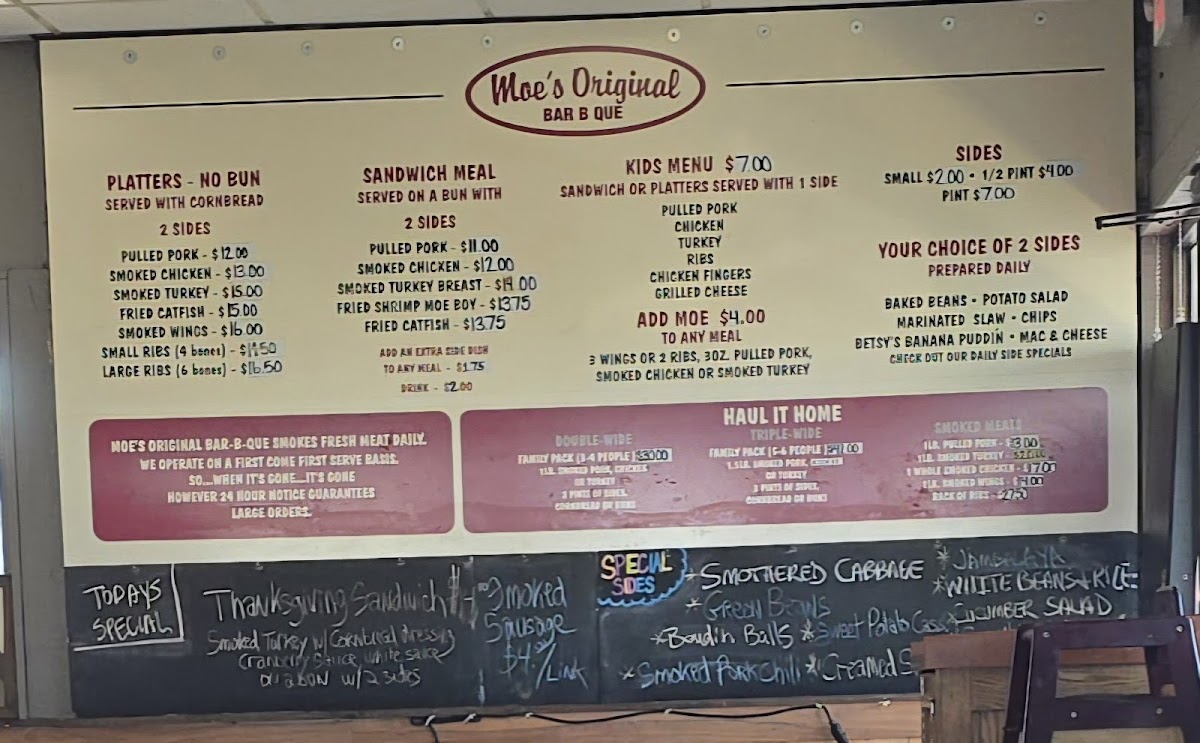 Moe's Original
BAR B QUE
PLATTERS - NO BUN
SERVED WITH CORNBREAD
2 SIDES
PULLED PORK - $12.00
SMOKED CHICKEN - $13.00
SMOKED TURKEY - $15.00
FRIED CATFISH - $15.00
SMOKED WINGS - $16.00
SMALL RIBS (4 bones) -
LARGE RIBS (6 bones) - $16.50
SANDWICH MEAL
SERVED ON A BUN WITH
2 SIDES
PULLED PORK - $11.00
SMOKED CHICKEN - $12.00
SMOKED TURKEY BREAST - $14.00
FRIED SHRIMP MOE BOY - $13.75
FRIED CATFISH - $13.75
ADD AN EXTRA SIDE DISH
TO ANY MEAL - $1.75
DRINK - $2.00
KIDS MENU $7.00
SANDWICH OR PLATTERS SERVED WITH 1 SIDE
PULLED PORK
CHICKEN
TURKEY
RIBS
CHICKEN FINGERS
GRILLED CHEESE
ADD MOE $4.00
TO ANY MEAL
3 WINGS OR 2 RIBS, 3OZ. PULLED PORK,
SMOKED CHICKEN OR SMOKED TURKEY
SIDES
SMALL $2.00 • 1/2 PINT $4.00
PINT $7.00
YOUR CHOICE OF 2 SIDES
PREPARED DAILY
BAKED BEANS • POTATO SALAD
MARINATED SLAW • CHIPS
BETSY'S BANANA PUDDIN • MAC & CHEESE
CHECK OUT OUR DAILY SIDE SPECIALS
MOE'S ORIGINAL BAR-B-QUE SMOKES FRESH MEAT DAILY.
WE OPERATE ON A FIRST COME FIRST SERVE BASIS.
SO...WHEN IT'S GONE...IT'S GONE
HOWEVER 24 HOUR NOTICE GUARANTEES
LARGE ORDERS.
HAUL IT HOME
DOUBLE-WIDE
FAMILY PACK (3-4 PEOPLE) $30.00
1LB. SMOKED PORK, CHICKEN
OR TURKEY
2 PINTS OF SIDES,
CORNBREAD OR BUNS
TRIPLE-WIDE
FAMILY PACK (5-6 PEOPLE)
1.5LB. SMOKED PORK, CHICKEN
OR TURKEY
3 PINTS OF SIDES,
CORNBREAD OR BUNS
SMOKED MEATS
1LB. PULLED PORK -
1LB. SMOKED TURKEY -
1 WHOLE SMOKED CHICKEN - $17.00
1LB. SMOKED WINGS -
RACK OF RIBS - $27.50
TODAYS
SPECIAL
Thanksgiving Sandwich
Smoked Turkey w/ Cornbread dressing
Cranberry Sauce, white sauce
on a BUN w/ 2 sides
Smoked
Sausage
/LINK
SPECIAL
SIDES
* SMOTHERED CABBAGE
* Green Beans
* Boudin Balls
* Sweet Potato Cass
* Smoked Pork Chili
* Creamed
* JAMBALAYA
* WHITE BEANS + RICE
* CUCUMBER SALAD